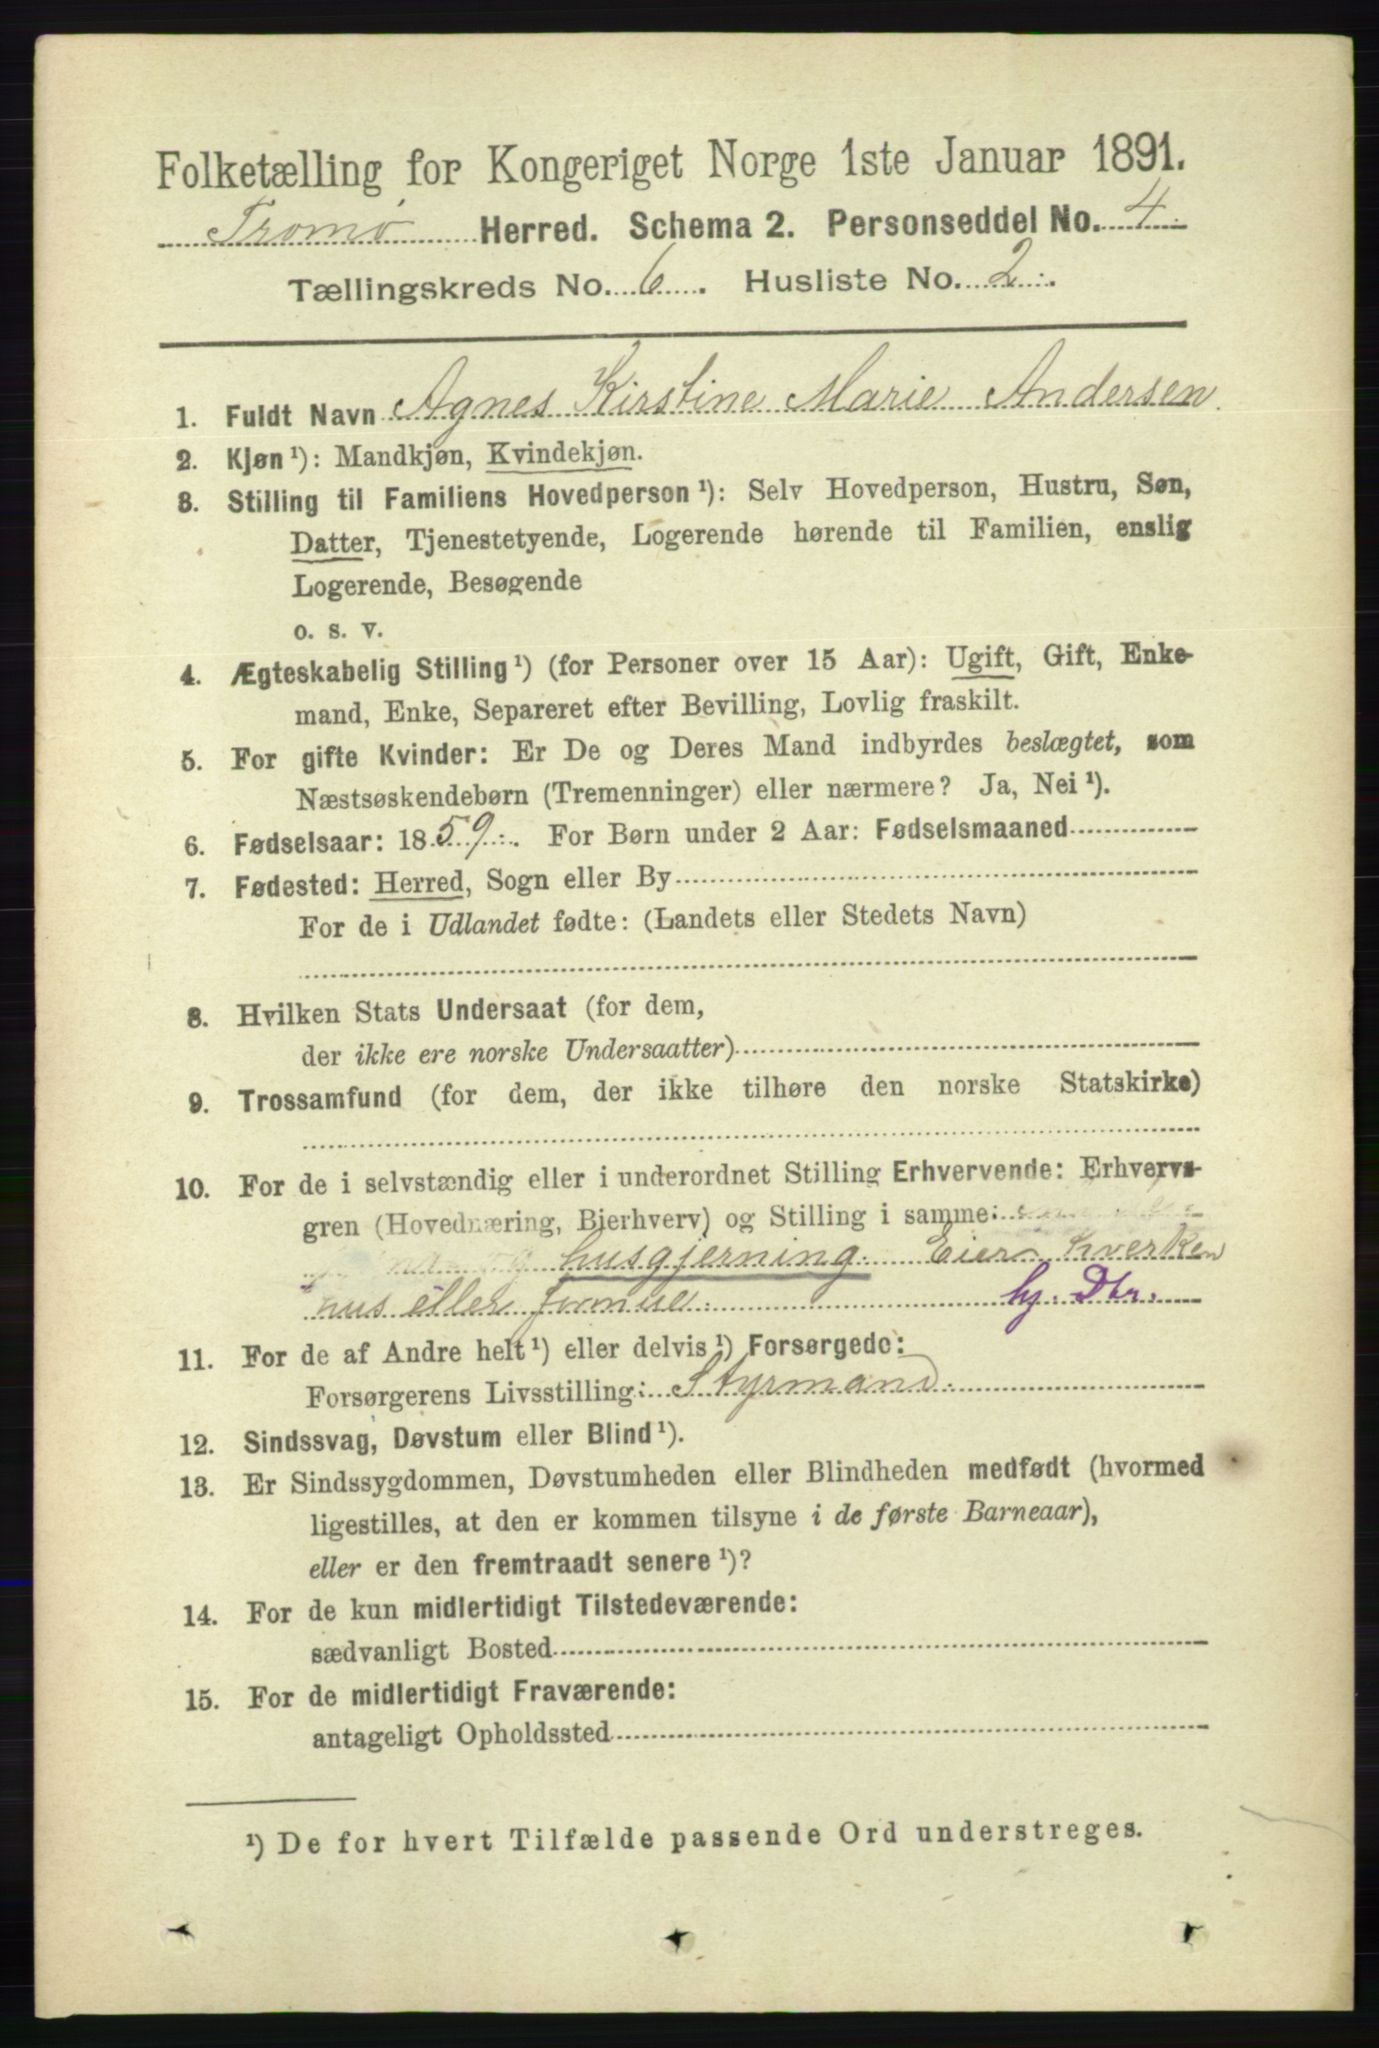 Folketælling for Kongeriget Norge 1ste Januar 1891.
Tromø Herred. Schema 2. Personseddel No. 4.
Tællingskreds No. 6. Husliste No. 2.
1. Fuldt Navn Agnes Kirstine Marie Andersen.
2. Kjøn ¹): Mandkjøn, Kvindekjøn.
3. Stilling til Familiens Hovedperson ¹): Selv Hovedperson, Hustru, Søn,
Datter, Tjenestetyende, Logerende hørende til Familien, enslig
Logerende, Besøgende
o. s. v.
4. Ægteskabelig Stilling ¹) (for Personer over 15 Aar): Ugift, Gift, Enke-
mand, Enke, Separeret efter Bevilling, Lovlig fraskilt.
5. For gifte Kvinder: Er De og Deres Mand indbyrdes beslægtet, som
Næstsøskendebørn (Tremenninger) eller nærmere? Ja, Nei ¹).
6. Fødselsaar: 1859. For Børn under 2 Aar: Fødselsmaaned
7. Fødested: Herred, Sogn eller By
For de i Udlandet fødte: (Landets eller Stedets Navn)
8. Hvilken Stats Undersaat (for dem,
der ikke ere norske Undersaatter)
9. Trossamfund (for dem, der ikke tilhøre den norske Statskirke)
10. For de i selvstændig eller i underordnet Stilling Erhvervende: Erhvervs-
gren (Hovednæring, Bierhverv) og Stilling i samme:
og husgjerning. Eier hverken
hus eller formue. hj. Dtr.
11. For de af Andre helt ¹) eller delvis ¹) Forsørgede:
Forsørgerens Livsstilling: Styrmand.
12. Sindssvag, Døvstum eller Blind ¹).
13. Er Sindssygdommen, Døvstumheden eller Blindheden medfødt (hvormed
ligestilles, at den er kommen tilsyne i de første Barneaar),
eller er den fremtraadt senere ¹)?
14. For de kun midlertidigt Tilstedeværende:
sædvanligt Bosted
15. For de midlertidigt Fraværende:
antageligt Opholdssted
¹) De for hvert Tilfælde passende Ord understreges.